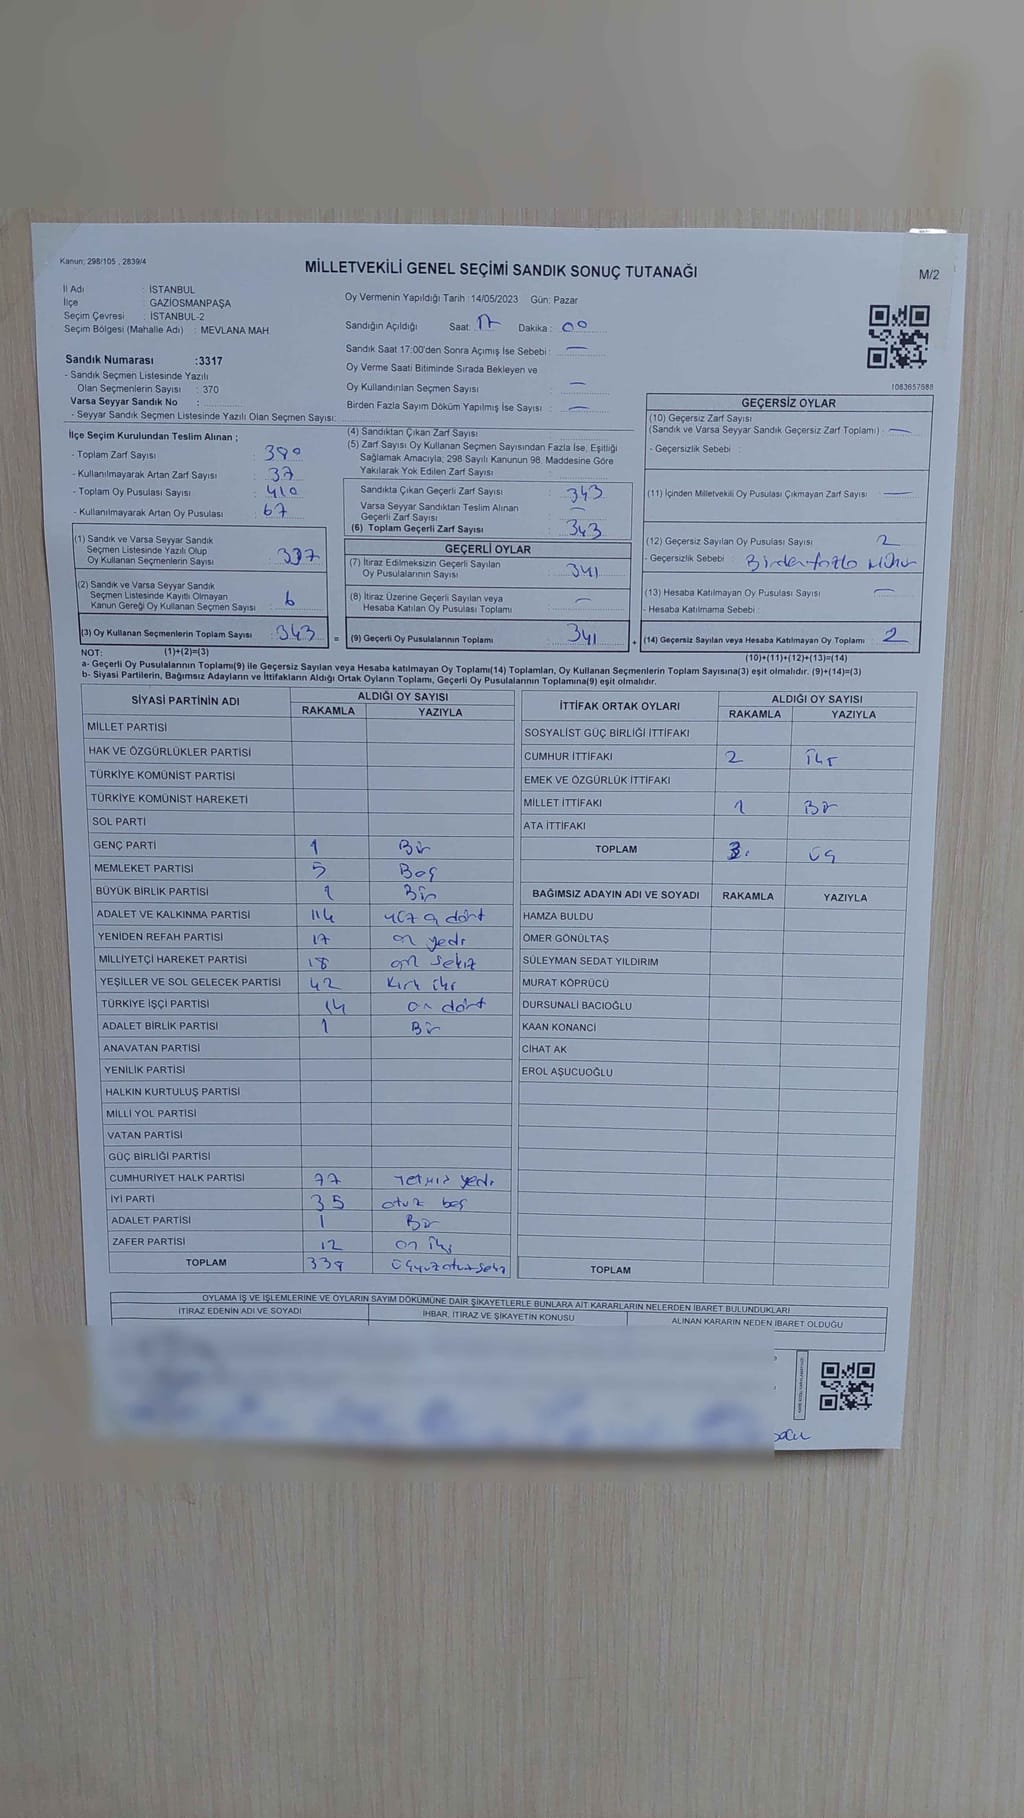 Kanun: 298/105 , 2839/4
MİLLETVEKİLİ GENEL SEÇİMİ SANDIK SONUÇ TUTANAĞI
M/2
İl Adı : İSTANBUL
İlçe : GAZİOSMANPAŞA
Seçim Çevresi : İSTANBUL-2
Seçim Bölgesi (Mahalle Adı) : MEVLANA MAH
Sandık Numarası :3317
- Sandık Seçmen Listesinde Yazılı
Olan Seçmenlerin Sayısı : 370
Varsa Seyyar Sandık No :
- Seyyar Sandık Seçmen Listesinde Yazılı Olan Seçmen Sayısı:
Oy Vermenin Yapıldığı Tarih :14/05/2023 Gün: Pazar
Sandığın Açıldığı Saat: 17 Dakika : 00
Sandık Saat 17:00'den Sonra Açımış İse Sebebi : —
Oy Verme Saati Bitiminde Sırada Bekleyen ve
Oy Kullandırılan Seçmen Sayısı : —
Birden Fazla Sayım Döküm Yapılmış İse Sayısı : —
1083657688
İlçe Seçim Kurulundan Teslim Alınan ;
- Toplam Zarf Sayısı : 380
- Kullanılmayarak Artan Zarf Sayısı : 37
- Toplam Oy Pusulası Sayısı : 410
- Kullanılmayarak Artan Oy Pusulası : 67
(1) Sandık ve Varsa Seyyar Sandık
Seçmen Listesinde Yazılı Olup
Oy Kullanan Seçmenlerin Sayısı : 337
(2) Sandık ve Varsa Seyyar Sandık
Seçmen Listesinde Kayıtlı Olmayan
Kanun Gereği Oy Kullanan Seçmen Sayısı : 6
(3) Oy Kullanan Seçmenlerin Toplam Sayısı : 343 =
(4) Sandıktan Çıkan Zarf Sayısı :
(5) Zarf Sayısı Oy Kullanan Seçmen Sayısından Fazla İse, Eşitliği
Sağlamak Amacıyla; 298 Sayılı Kanunun 98. Maddesine Göre
Yakılarak Yok Edilen Zarf Sayısı :
Sandıkta Çıkan Geçerli Zarf Sayısı : 343
Varsa Seyyar Sandıktan Teslim Alınan
Geçerli Zarf Sayısı : —
(6) Toplam Geçerli Zarf Sayısı : 343
GEÇERLİ OYLAR
(7) İtiraz Edilmeksizin Geçerli Sayılan
Oy Pusulalarının Sayısı : 341
(8) İtiraz Üzerine Geçerli Sayılan veya
Hesaba Katılan Oy Pusulası Toplamı : —
(9) Geçerli Oy Pusulalarının Toplamı : 341 +
GEÇERSİZ OYLAR
(10) Geçersiz Zarf Sayısı
(Sandık ve Varsa Seyyar Sandık Geçersiz Zarf Toplamı) : —
- Geçersizlik Sebebi :
(11) İçinden Milletvekili Oy Pusulası Çıkmayan Zarf Sayısı : —
(12) Geçersiz Sayılan Oy Pusulası Sayısı : 2
- Geçersizlik Sebebi : Birden fazla Mühür
(13) Hesaba Katılmayan Oy Pusulası Sayısı : —
- Hesaba Katılmama Sebebi :
(14) Geçersiz Sayılan veya Hesaba Katılmayan Oy Toplamı : 2
NOT: (1)+(2)=(3) (10)+(11)+(12)+(13)=(14)
a- Geçerli Oy Pusulalarının Toplamı(9) ile Geçersiz Sayılan veya Hesaba katılmayan Oy Toplamı(14) Toplamları, Oy Kullanan Seçmenlerin Toplam Sayısına(3) eşit olmalıdır. (9)+(14)=(3)
b- Siyasi Partilerin, Bağımsız Adayların ve İttifakların Aldığı Ortak Oyların Toplamı, Geçerli Oy Pusulalarının Toplamına(9) eşit olmalıdır.
SİYASİ PARTİNİN ADI ALDIĞI OY SAYISI
RAKAMLA YAZIYLA
MİLLET PARTİSİ
HAK VE ÖZGÜRLÜKLER PARTİSİ
TÜRKİYE KOMÜNİST PARTİSİ
TÜRKİYE KOMÜNİST HAREKETİ
SOL PARTİ
GENÇ PARTİ 1 Bir
MEMLEKET PARTİSİ 5 Beş
BÜYÜK BİRLİK PARTİSİ 1 Bir
ADALET VE KALKINMA PARTİSİ 114 dört
YENİDEN REFAH PARTİSİ 17 on yedi
MİLLİYETÇİ HAREKET PARTİSİ 18 on sekiz
YEŞİLLER VE SOL GELECEK PARTİSİ 42 Kırk iki
TÜRKİYE İŞÇİ PARTİSİ 14 on dört
ADALET BİRLİK PARTİSİ 1 Bir
ANAVATAN PARTİSİ
YENİLİK PARTİSİ
HALKIN KURTULUŞ PARTİSİ
MİLLİ YOL PARTİSİ
VATAN PARTİSİ
GÜÇ BİRLİĞİ PARTİSİ
CUMHURİYET HALK PARTİSİ 77 Yetmiş yedi
İYİ PARTİ 35 otuz beş
ADALET PARTİSİ 1 Bir
ZAFER PARTİSİ 12 on iki
TOPLAM 338 üçyüzotuzsekiz
İTTİFAK ORTAK OYLARI ALDIĞI OY SAYISI
RAKAMLA YAZIYLA
SOSYALİST GÜÇ BİRLİĞİ İTTİFAKI
CUMHUR İTTİFAKI 2 İki
EMEK VE ÖZGÜRLÜK İTTİFAKI
MİLLET İTTİFAKI 1 Bir
ATA İTTİFAKI
TOPLAM 3 üç
BAĞIMSIZ ADAYIN ADI VE SOYADI RAKAMLA YAZIYLA
HAMZA BULDU
ÖMER GÖNÜLTAŞ
SÜLEYMAN SEDAT YILDIRIM
MURAT KÖPRÜCÜ
DURSUNALİ BACIOĞLU
KAAN KONANCİ
CİHAT AK
EROL AŞUCUOĞLU
TOPLAM
OYLAMA İŞ VE İŞLEMLERİNE VE OYLARIN SAYIM DÖKÜMÜNE DAİR ŞİKAYETLERLE BUNLARA AİT KARARLARIN NELERDEN İBARET BULUNDUKLARI
İTİRAZ EDENİN ADI VE SOYADI İHBAR, İTİRAZ VE ŞİKAYETİN KONUSU ALINAN KARARIN NEDEN İBARET OLDUĞU